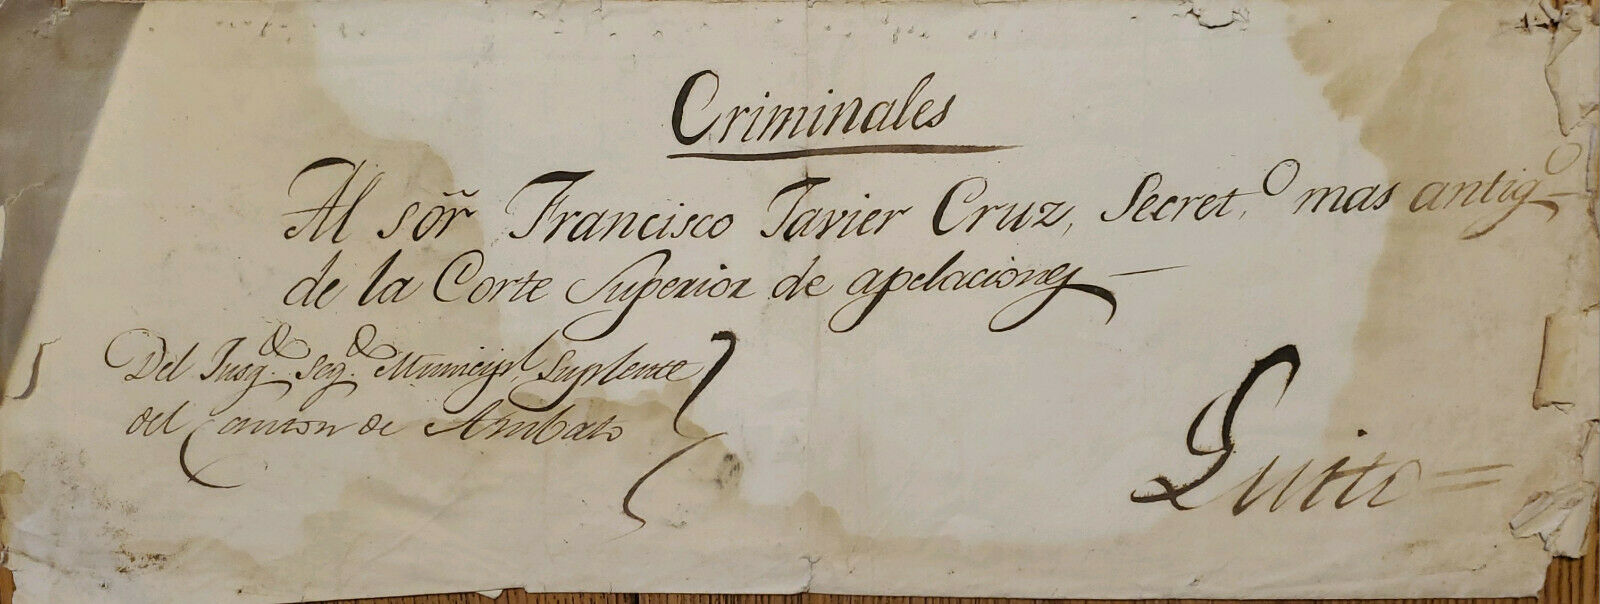 Criminales
Al Sōr Francisco Javier Cruz, Secret.º mas antigº
de la Corte Superior de apelaciones
Del Jusgº Segº Municipl Suplente
del Canton de Ambato
Quito=